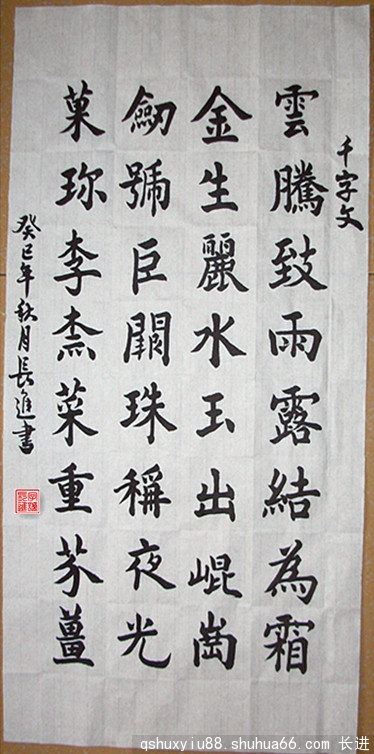 千字文
雲騰致雨露結為霜
金生麗水玉出崐崗
劒號巨闕珠稱夜光
菓珎李柰菜重芥薑
癸巳年秋月長進書
qshuxyiu88.shuhua66.com 长进